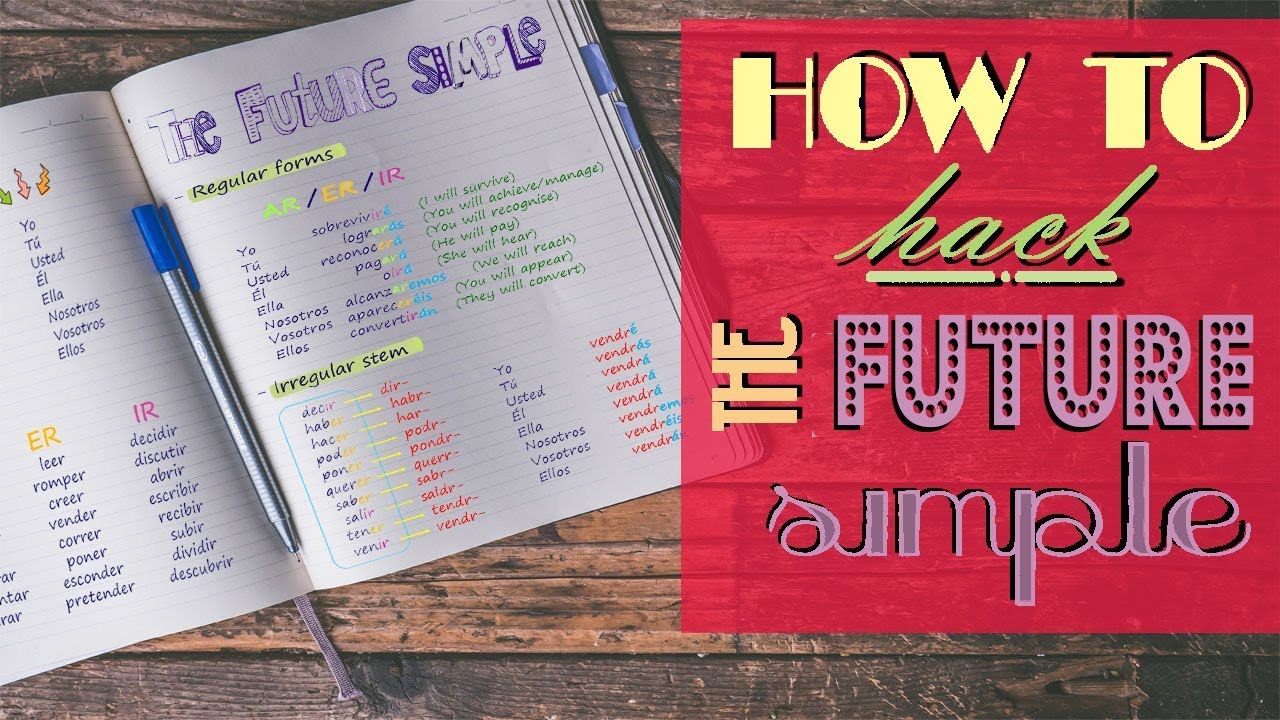 Yo
Tú
Usted
Él
Ella
Nosotros
Vosotros
Ellos
ER
leer
romper
creer
vender
correr
poner
esconder
pretender
IR
decidir
discutir
abrir
escribir
recibir
subir
dividir
descubrir
The Future Simple
- Regular forms
AR / ER / IR
Yo sobreviviré (I will survive)
Tú lograrás (You will achieve/manage)
Usted reconocerá (You will recognise)
Él pagará (He will pay)
Ella oirá (She will hear)
Nosotros alcanzaremos (We will reach)
Vosotros apareceréis (You will appear)
Ellos convertirán (They will convert)
- Irregular stem
decir dir-
haber habr-
hacer har-
poder podr-
poner pondr-
querer querr-
saber sabr-
salir saldr-
tener tendr-
venir vendr-
Yo vendré
Tú vendrás
Usted vendrá
Él vendrá
Ella vendrá
Nosotros vendremos
Vosotros vendréis
Ellos vendrán
HOW TO
hack
THE FUTURE
simple